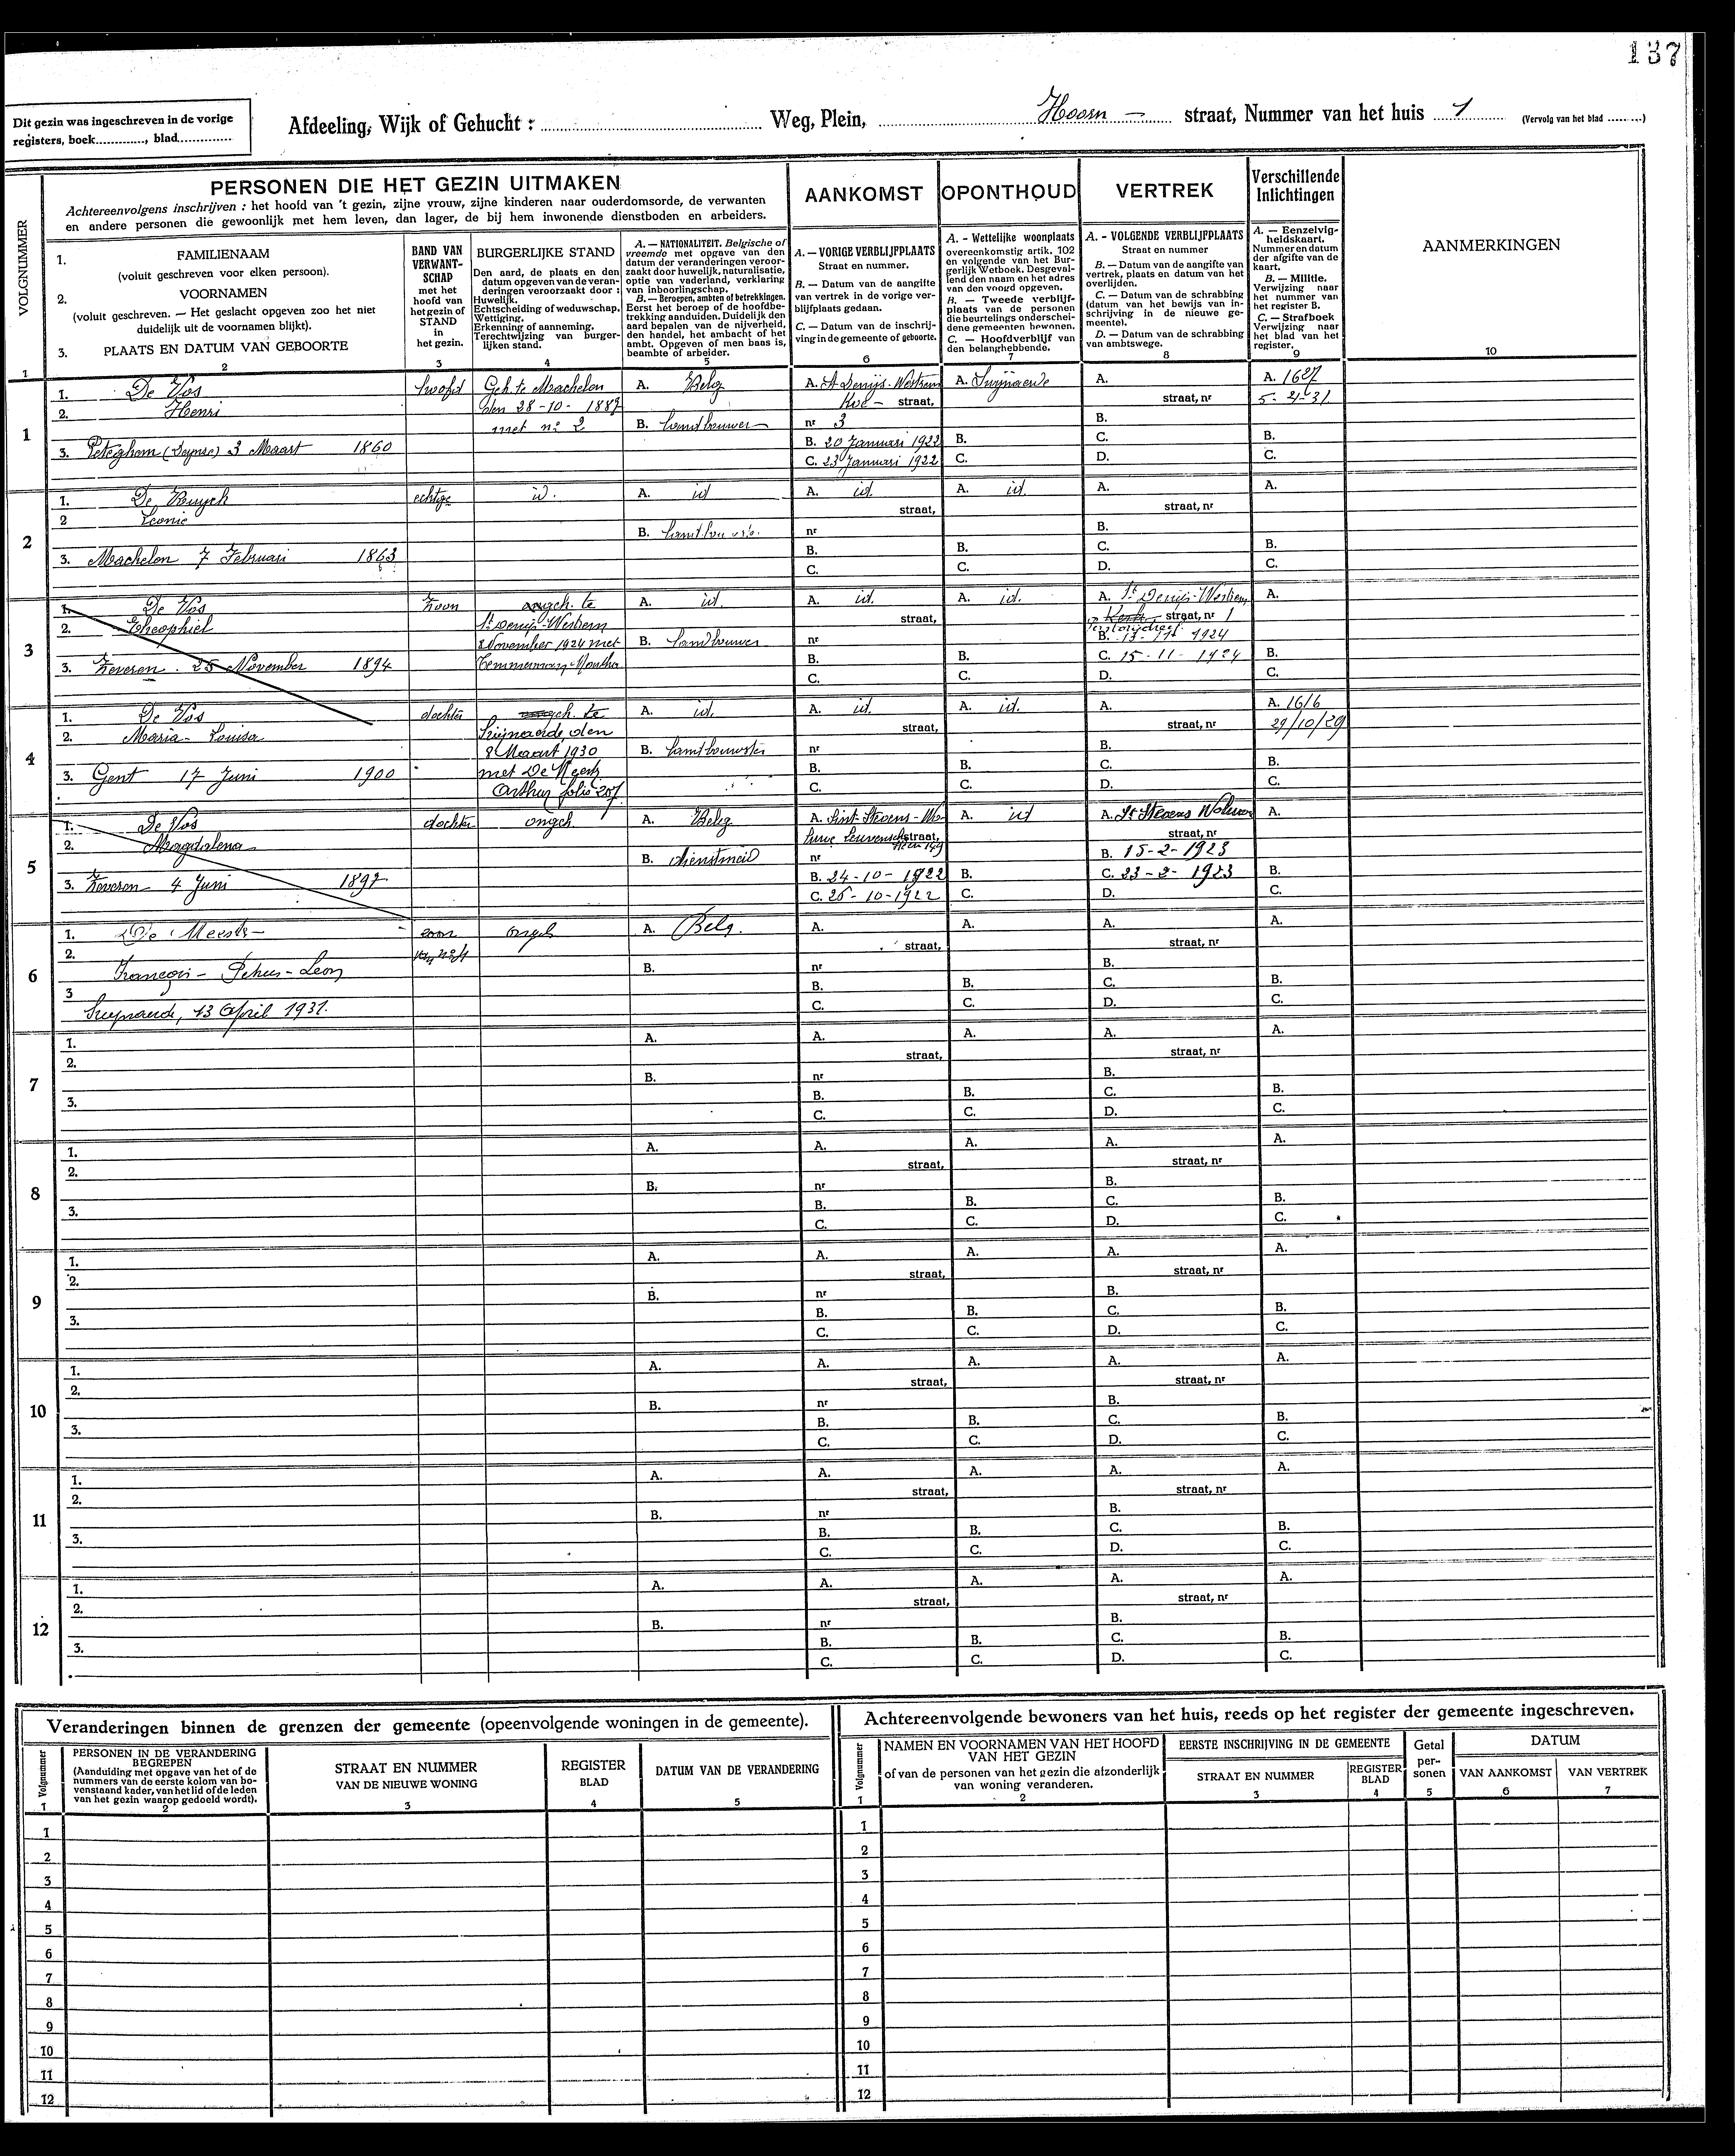 137
Dit gezin was ingeschreven in de vorige
registers, boek............., blad...............
Afdeeling, Wijk of Gehucht : ............ Weg, Plein, ............ Hoorn — straat, Nummer van het huis 1 (Vervolg van het blad ........)
VOLGNUMMER
PERSONEN DIE HET GEZIN UITMAKEN
Achtereenvolgens inschrijven : het hoofd van 't gezin, zijne vrouw, zijne kinderen naar ouderdomsorde, de verwanten
en andere personen die gewoonlijk met hem leven, dan lager, de bij hem inwonende dienstboden en arbeiders.
1. FAMILIENAAM
(voluit geschreven voor elken persoon).
2. VOORNAMEN
(voluit geschreven. — Het geslacht opgeven zoo het niet
duidelijk uit de voornamen blijkt).
3. PLAATS EN DATUM VAN GEBOORTE
2
BAND VAN
VERWANT-
SCHAP
met het
hoofd van
het gezin of
STAND
in
het gezin.
3
BURGERLIJKE STAND
Den aard, de plaats en den
datum opgeven van de veran-
deringen veroorzaakt door :
Huwelijk.
Echtscheiding of weduwschap.
Wettiging.
Erkenning of aanneming.
Terechtwijzing van burger-
lijken stand.
4
A. — NATIONALITEIT. Belgische of
vreemde met opgave van den
datum der veranderingen veroor-
zaakt door huwelijk, naturalisatie,
optie van vaderland, verklaring
van inboorlingschap.
B. — Beroepen, ambten of betrekkingen.
Eerst het beroep of de hoofdbe-
trekking aanduiden. Duidelijk den
aard bepalen van de nijverheid,
den handel, het ambacht of het
ambt. Opgeven of men baas is,
beambte of arbeider.
5
AANKOMST
A. — VORIGE VERBLIJFPLAATS
Straat en nummer.
B. — Datum van de aangifte
van vertrek in de vorige ver-
blijfplaats gedaan.
C. — Datum van de inschrij-
ving in de gemeente of geboorte.
6
OPONTHOUD
A. - Wettelijke woonplaats
overeenkomstig artik. 102
en volgende van het Bur-
gerlijk Wetboek. Desgeval-
lend den naam en het adres
van den voogd opgeven.
B. — Tweede verblijf-
plaats van de personen
die beurtelings onderschei-
dene gemeenten bewonen.
C. — Hoofdverblijf van
den belanghebbende.
7
VERTREK
A. - VOLGENDE VERBLIJFPLAATS
Straat en nummer
B. — Datum van de aangifte van
vertrek, plaats en datum van het
overlijden.
C. — Datum van de schrabbing
(datum van het bewijs van in-
schrijving in de nieuwe ge-
meente).
D. — Datum van de schrabbing
van ambtswege.
8
Verschillende
Inlichtingen
A. — Eenzelvig-
heidskaart.
Nummer en datum
der afgifte van de
kaart.
B. — Militie.
Verwijzing naar
het nummer van
het register B.
C. — Strafboek
Verwijzing naar
het blad van het
register.
9
AANMERKINGEN
10
1
1
1. De Vos
2. Henri
3. Peteghem (Deynse) 3 Maart 1860
hoofd
Geh. te Machelen
den 28-10-1887
met nr 2
A. Belg
B. Landbouwer
A. St Denijs-Westrem
Koe - straat,
nr 3
B. 20 Januari 1922
C. 23 Januari 1922
A. Swijnaerde
B.
C.
A.
straat, nr
B.
C.
D.
A. 1627
5-2-31
B.
C.
2
1. De Ruyck
2 Leonie
3. Machelen 7 Februari 1863
echtge
id.
A. id
B. Landbouwster
A. id.
straat,
nr
B.
C.
A. id.
B.
C.
A.
straat, nr
B.
C.
D.
A.
B.
C.
3
1. De Vos
2. Theophiel
3. Zeveren. 25 November 1894
zoon
ongeh. te
St Denijs-Westrem
8 November 1924 met
Temmerman, Martha
A. id.
B. Landbouwer
A. id.
straat,
nr
B.
C.
A. id.
B.
C.
A. St Denijs-Westrem
Kerk straat, nr 1
B. 13-11-1924
C. 15-11-1924
D.
A.
B.
C.
4
1. De Vos
2. Maria-Louisa
3. Gent 17 Juni 1900
dochter
ongeh. te
Swijnaerde, den
8 Maart 1930
met De Meester
Arthur folio 207
A. id.
B. Landbouwster
A. id.
straat,
nr
B.
C.
A. id.
B.
C.
A.
straat, nr
B.
C.
D.
A. 1616
29/10/29
B.
C.
5
1. De Vos
2. Magdalena
3. Zeveren 4 Juni 1897
dochter
ongeh
A. Belg
B. dienstmeid
A. Sint-Stevens-Wo-
luwe Leuvensch straat,
nr
B. 24-10-1922
C. 26-10-1922
A. id
B.
C.
A. St Stevens Woluwe
straat, nr
B. 15-2-1923
C. 23-2-1923
D.
A.
B.
C.
6
1. De Meester
2.
François-Petrus-Leon
3
Swijnaerde, 13 April 1931.
zoon
van nr 4
ongeh
A. Belg.
B.
A.
straat,
nr
B.
C.
A.
B.
C.
A.
straat, nr
B.
C.
D.
A.
B.
C.
7
1.
2.
3.
A.
B.
A.
straat,
nr
B.
C.
A.
B.
C.
A.
straat, nr
B.
C.
D.
A.
B.
C.
8
1.
2.
3.
A.
B.
A.
straat,
nr
B.
C.
A.
B.
C.
A.
straat, nr
B.
C.
D.
A.
B.
C.
9
1.
2.
3.
A.
B.
A.
straat,
nr
B.
C.
A.
B.
C.
A.
straat, nr
B.
C.
D.
A.
B.
C.
10
1.
2.
3.
A.
B.
A.
straat,
nr
B.
C.
A.
B.
C.
A.
straat, nr
B.
C.
D.
A.
B.
C.
11
1.
2.
3.
A.
B.
A.
straat,
nr
B.
C.
A.
B.
C.
A.
straat, nr
B.
C.
D.
A.
B.
C.
12
1.
2.
3.
A.
B.
A.
straat,
nr
B.
C.
A.
B.
C.
A.
straat, nr
B.
C.
D.
A.
B.
C.
Veranderingen binnen de grenzen der gemeente (opeenvolgende woningen in de gemeente).
Volgnummer
1
PERSONEN IN DE VERANDERING
BEGREPEN
(Aanduiding met opgave van het of de
nummers van de eerste kolom van bo-
venstaand kader, van het lid of de leden
van het gezin waarop gedoeld wordt).
2
STRAAT EN NUMMER
VAN DE NIEUWE WONING
3
REGISTER
BLAD
4
DATUM VAN DE VERANDERING
5
1
2
3
4
5
6
7
8
9
10
11
12
Achtereenvolgende bewoners van het huis, reeds op het register der gemeente ingeschreven.
Volgnummer
1
NAMEN EN VOORNAMEN VAN HET HOOFD
VAN HET GEZIN
of van de personen van het gezin die afzonderlijk
van woning veranderen.
2
EERSTE INSCHRIJVING IN DE GEMEENTE
STRAAT EN NUMMER
3
REGISTER
BLAD
4
Getal
per-
sonen
5
DATUM
VAN AANKOMST
6
VAN VERTREK
7
1
2
3
4
5
6
7
8
9
10
11
12